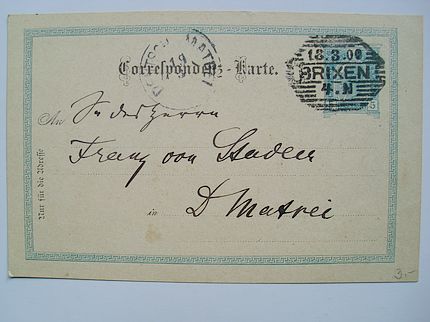 18.3.00
BRIXEN
4.N
Correspondenz-Karte.
5
An
Franz von Stadler
in D Matrei
Nur für die Adresse
3.-